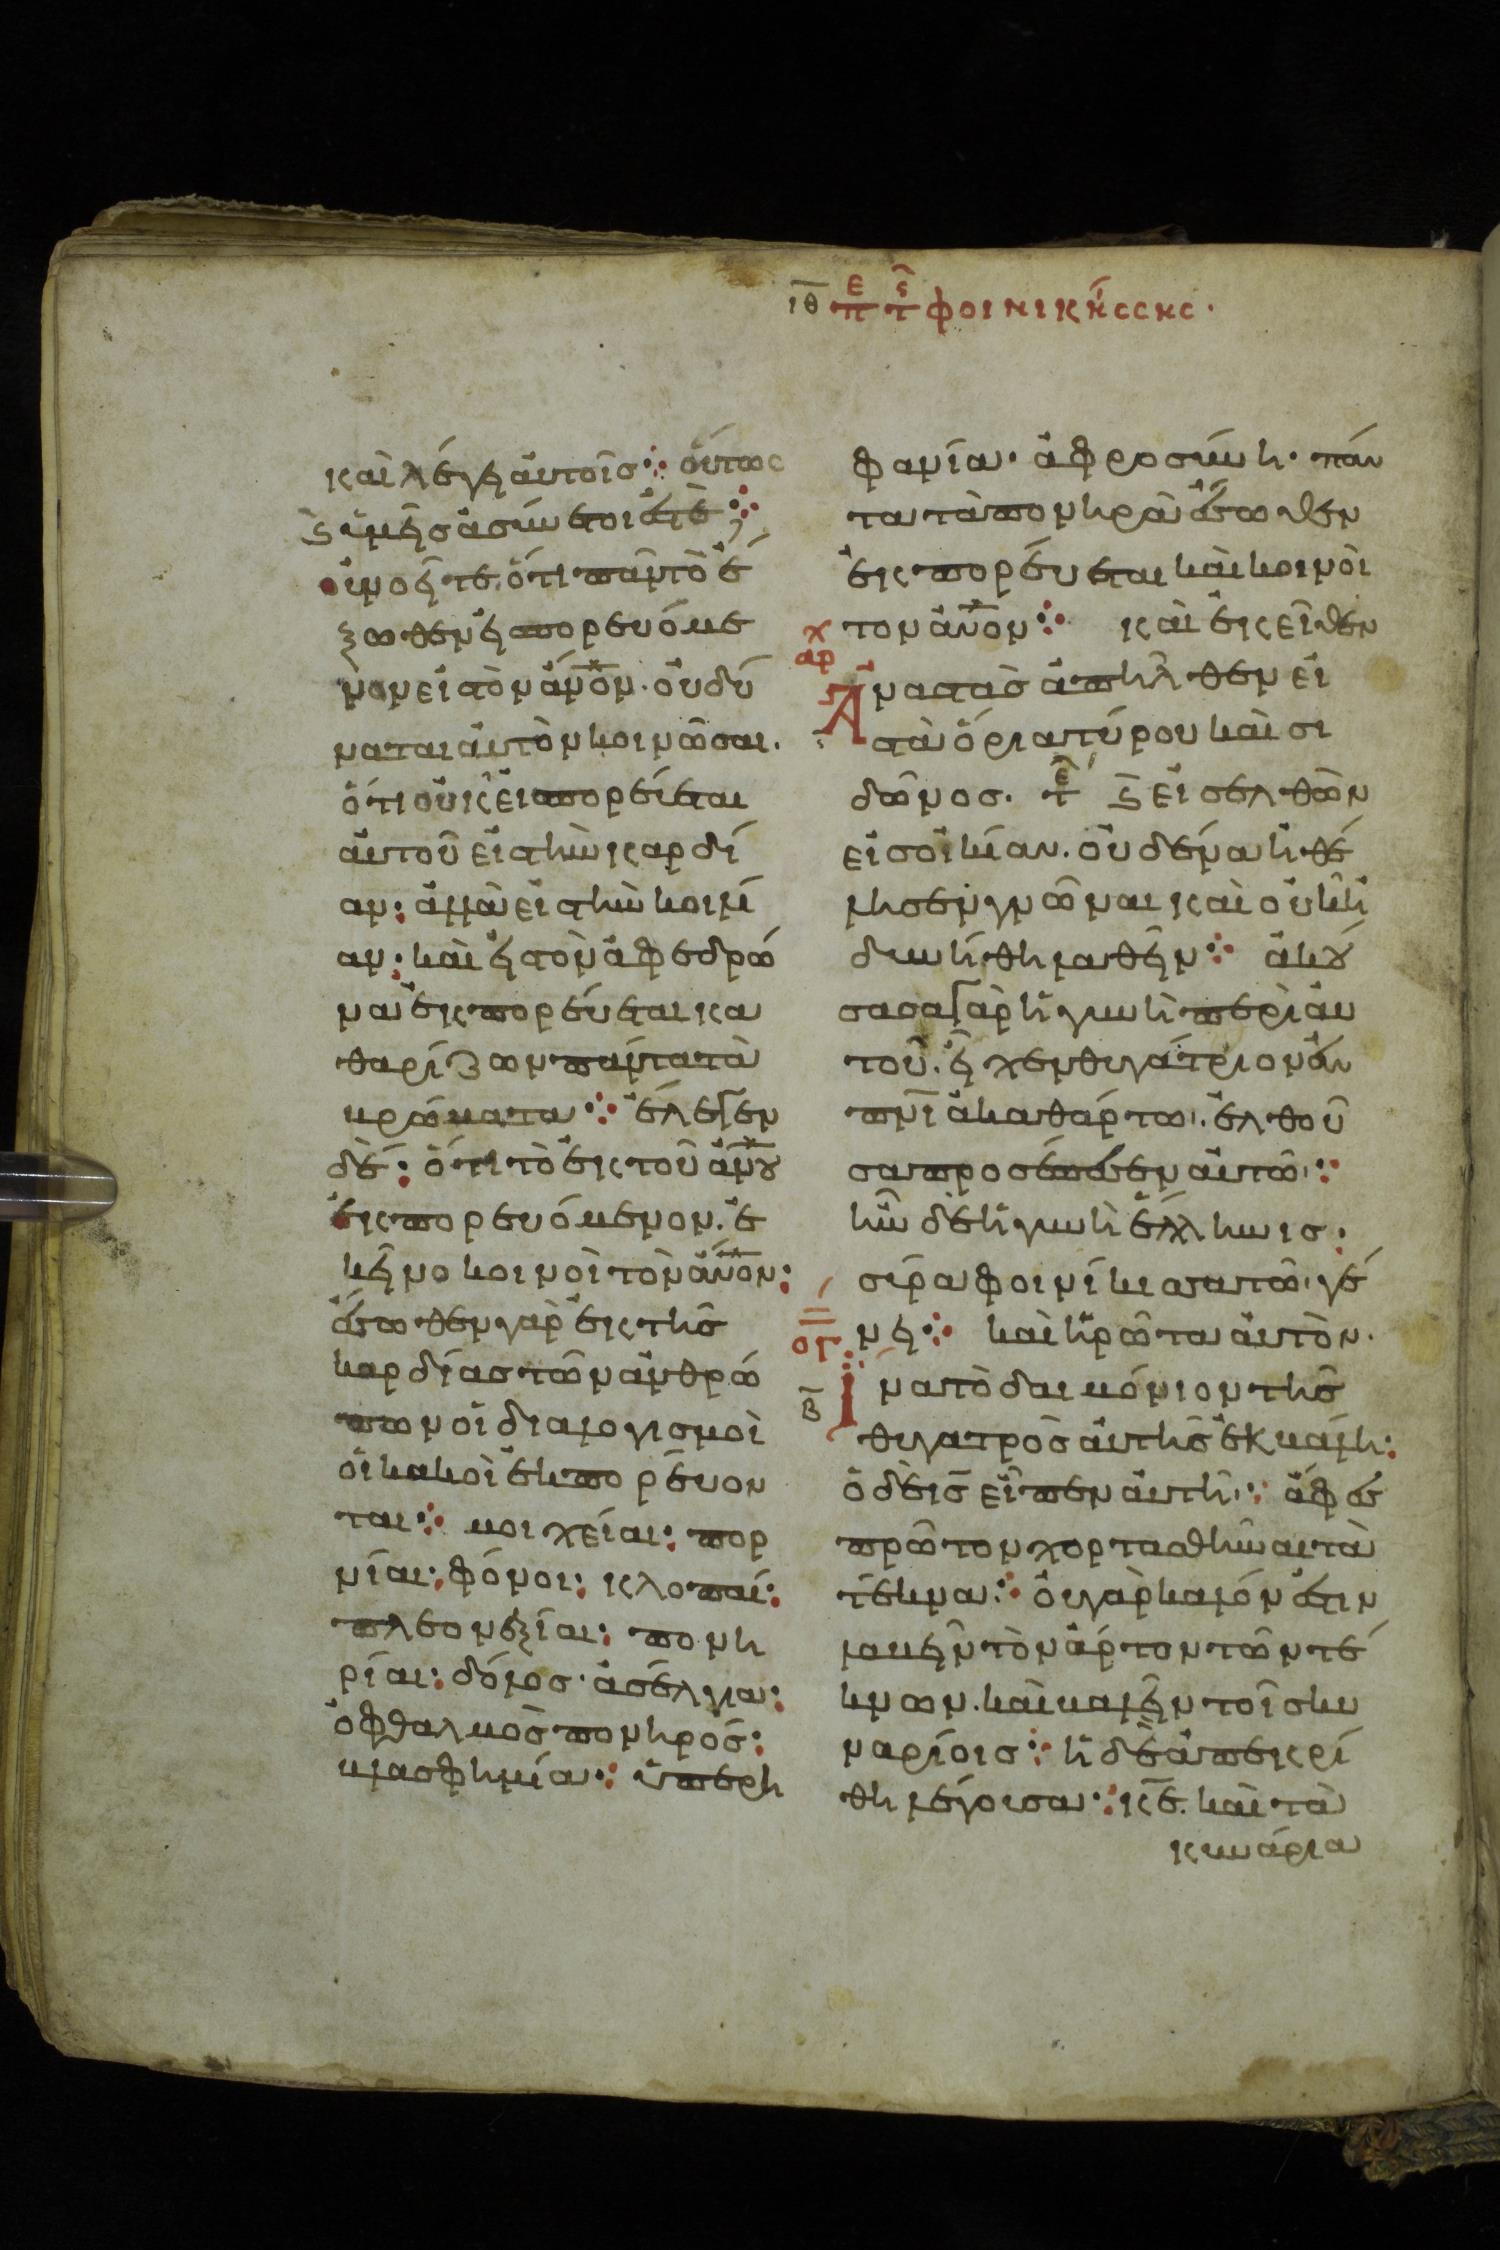 ιθ πε τς φοινικήσσης·
καὶ λέγη αὐτοῖσ οὕτως
ϗ ὑμῆσ ἀσύνετοι ἐστὲ
οὐ νοῆτε. ὅτι πᾶν τὸ ἔ
ξωθεν ἠσπορευόμε
νον εἰσ τὸν ἄν̅ο̅ν· οὐ δύ
ναται αὐτὸν κοινῶσαι.
ὅτι οὐκ εἰσπορεύεται
αὐτοῦ εἰσ τὴν καρδί
αν: ἀλλὰ εἰσ τὴν κοιλί
αν: καὶ ἠσ τὸν ἀφεδρῶ
να ἐκπορεύεται κα
θαρίζων πάντα τὰ
βρώματα ἔλεγεν
δέ: ὅτι τὸ ἐκ τοῦ ἀν̅ου
ἐκπορευόμενον. ἐ
κῆνο κοινοῖ τὸν ἄν̅ο̅ν:
ἔσωθεν γὰρ ἐκ τῆσ
καρδίασ τῶν ἀνθρώ
πων οἱ διαλογισμοὶ
οἱ κακοὶ ἐκπορεύον
ται μοιχεῖαι: πορ
νίαι: φόνοι: κλοπαί:
πλεονεξίαι: πονη
ρίαι: δόλοσ· ἀσέλγια:
ὀφθαλμοσ πονηρόσ:
βλασφημία: ὑπερη
φανία· ἀφροσύνη· πάν
τα τὰ πονηρὰ ἔσωθεν
ἐκπορεύεται καὶ κοινοῖ
τὸν ἄν̅ο̅ν καὶ ἐκεῖθεν
χ
αρ
Ἀναστὰσ ἀπῆλθεν εἰσ
τὰ ὅρια τύρου καὶ σι
δῶνοσ. τε ϗ εἰσελθὼν
εἰσ οἰκίαν. οὐδένα ἤθε
λησεν γνῶναι καὶ οὐκ ἠ
δυνήθη λαθῆν ἀκού
σασα γὰρ ἡ γυνὴ περὶ αὐ
τοῦ. ἧ χεν θυγάτριον ἐν
πν̅ι ἀκαθάρτω. ἐλθοῦ
σα προσέπεσεν αὐτῶ
ἦν δὲ ἡ γυνὴ ἑλληνισ:
σύρα φοινίκισα τῶ γέ
νη καὶ ἠρῶτα αὐτὸν.
ογ
β
Ἵνα τὸ δαιμόνιον τῆσ
θυγατρὸσ αὐτῆσ ἐκβάλη:
ὁ δὲ ι̅σ̅ εἶπεν αὐτῆ ἄφεσ
πρῶτον χορτασθῆναι τὰ
τέκνα οὐ γὰρ καλόν ἐστιν
λαβῆν τὸν ἄρτον τῶν τέ
κνων. καὶ βαλῆν τοῖσ κυ
ναρίοισ ἡ δὲ ἀπεκρί
θη λέγουσα κ̅ε̅. καὶ τὰ
κυνάρια